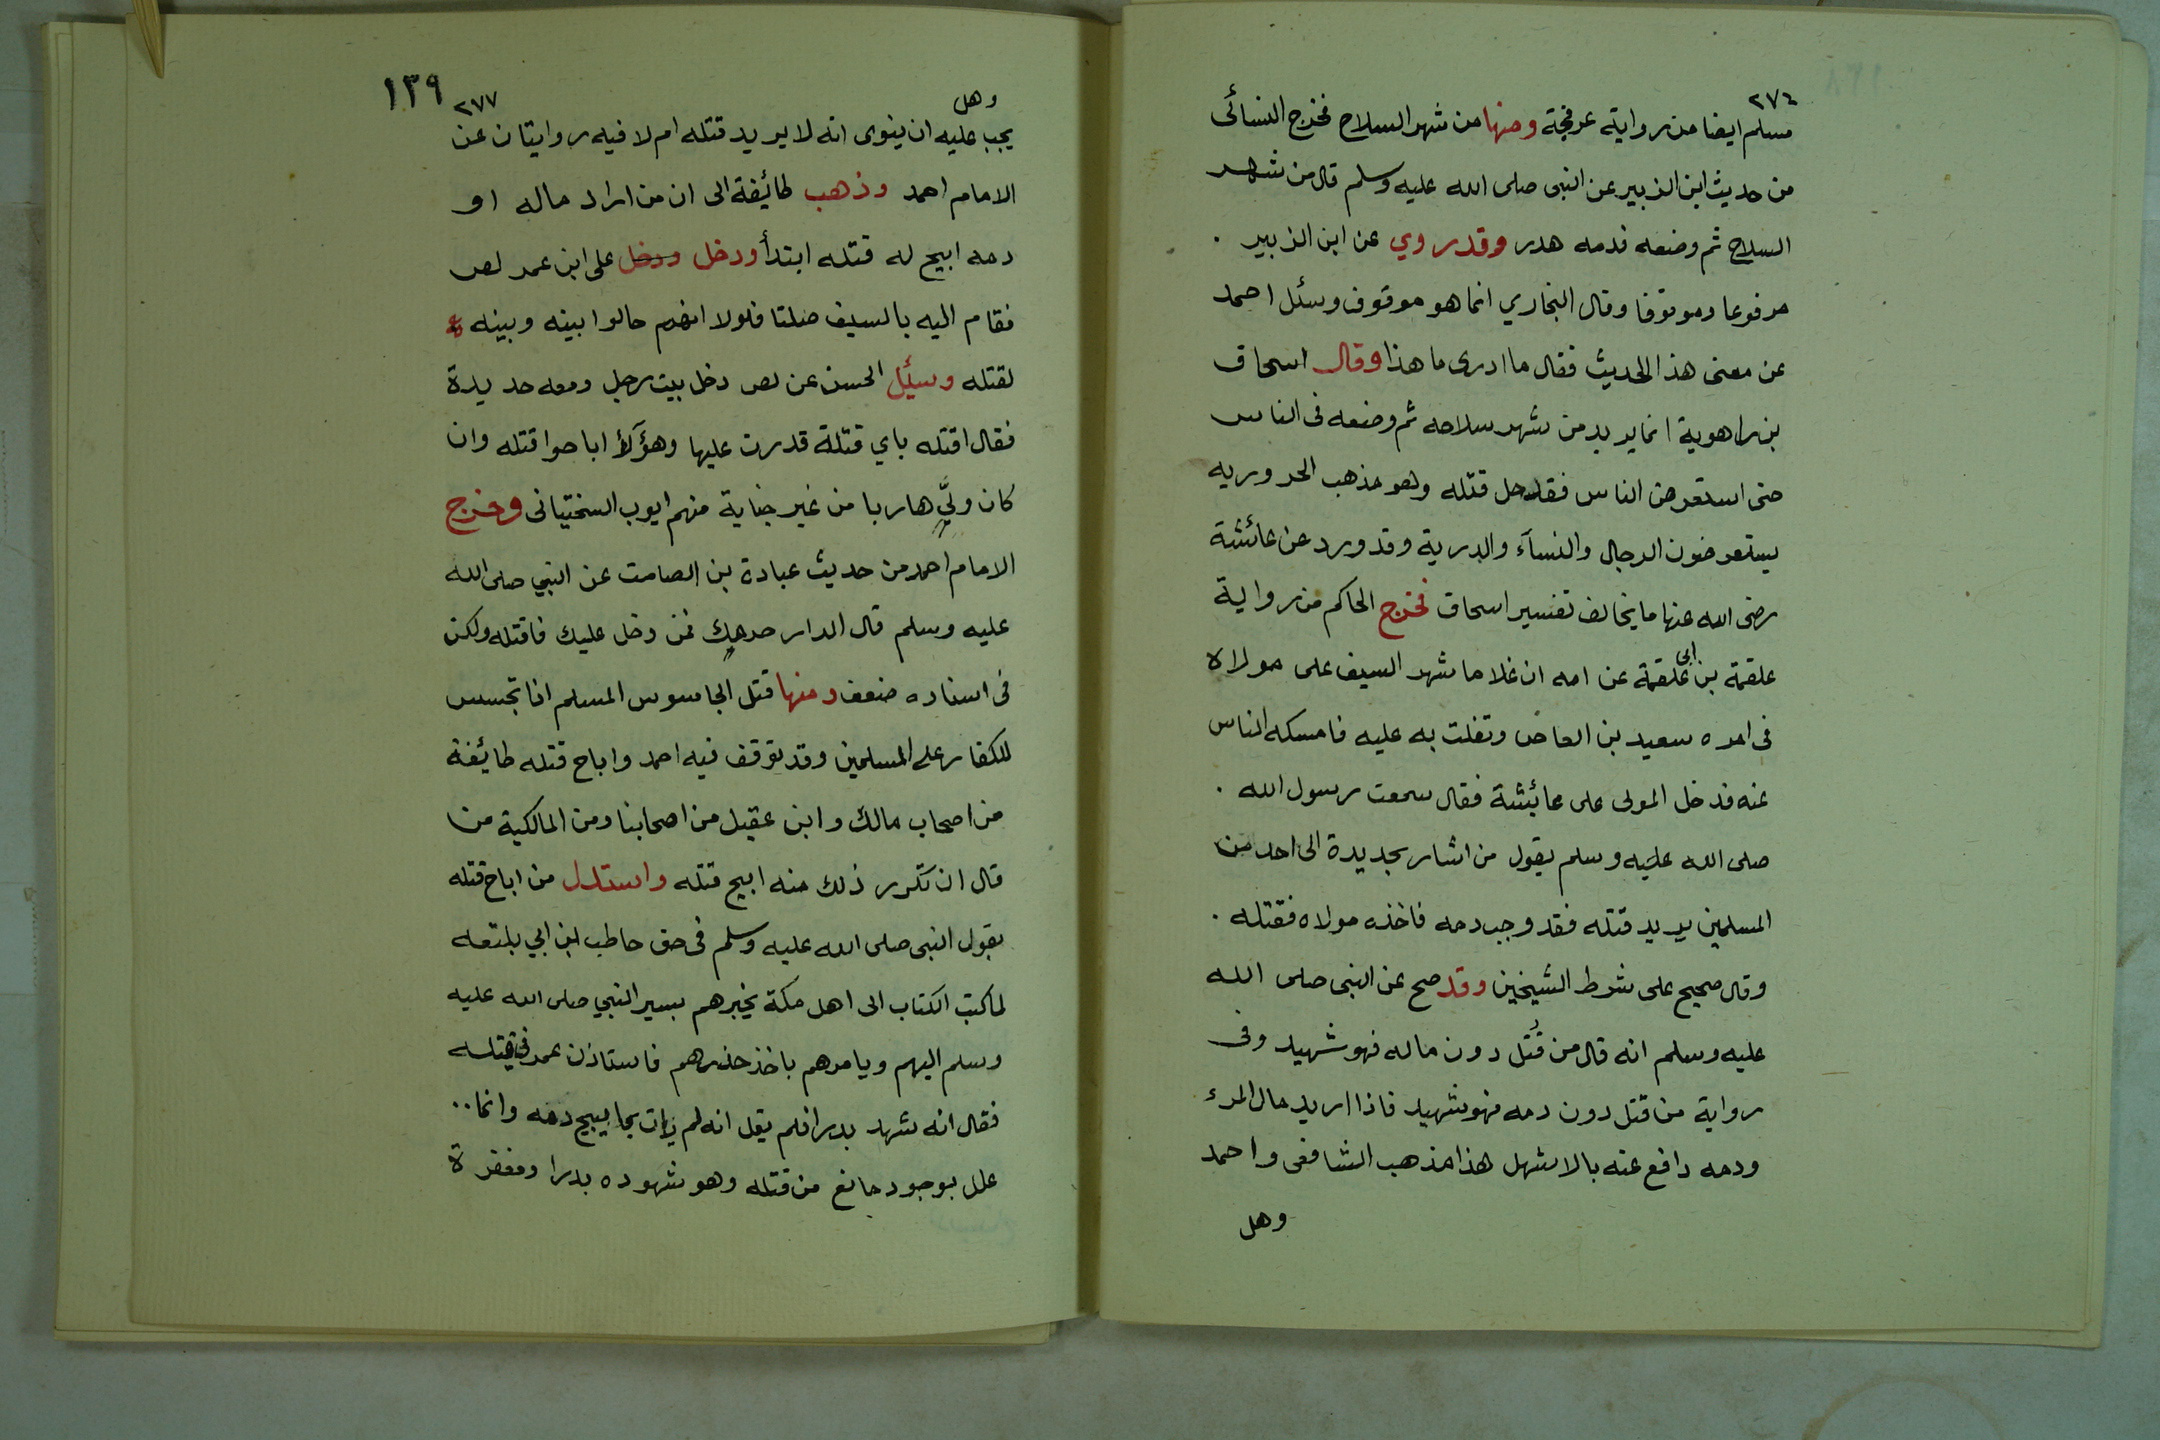 ٢٧٦
مسلم ايضا من رواية عرفجة ومنها من شهر السلاح فخرج النسائى
من حديث ابن الزبير عن النبى صلى الله عليه وسلم قال من شهر
السلاح ثم وضعه فدمه هدر وقد روي عن ابن الزبير .
مرفوعا وموقوفا وقال البخاري انما هو موقوف وسئل احمد
عن معنى هذا الحديث فقال ما ادرى ما هذا وقال اسحاق
بن راهوية انما يريد من شهر سلاحه ثم وضعه فى الناس
حتى استعرض الناس فقد حل قتله وهو مذهب الحروريه
يستعرضون الرجال والنسآء والدرية وقد ورد عن عائشة
رضى الله عنها ما يخالف تفسير اسحاق فخرج الحاكم من رواية
علقمة بن ابى علقمة عن امه ان غلاما شهر السيف على مولاه
فى امره سعيد بن العاص وتفلت به عليه فامسكه الناس
عنه فدخل المولى على عائيشة فقال سمعت رسول الله .
صلى الله عليه وسلم يقول من اشار بحديدة الى احد من
المسلمين يريد قتله فقد وجب دمه فاخذه مولاه فقتله .
وقال صحيح على شرط الشيخين وقد صح عن النبى صلى الله
عليه وسلم انه قال من قُتل دون ماله فهو شهيد وفى
رواية من قتل دون دمه فهو شهيد فاذا اريد مال المرء
ودمه دافع عنه بالاسهل هذا مذهب الشافعى واحمد
وهل
١٣٩
٢٧٧
وهل
يجب عليه ان ينوى انه لا يريد قتله ام لا فيه روايتان عن
الامام احمد وذهب طائيفة الى ان من اراد ماله او
دمه ابيح له قتله ابتدأ ودخل ودخل على ابن عمر لص
فقام اليه بالسيف صلتا فلولا انهم حالوا بينه وبينه
لقتله وسئيل الحسن عن لص دخل بيت رجل ومعه حديدة
فقال اقتله باي قتلة قدرت عليها وهؤلآ اباحوا قتله وان
كان وليَّ هاربا من غير جناية منهم ايوب السختيانى وخرج
الامام احمد من حديث عبادة بن الصامت عن النبي صلى الله
عليه وسلم قال الدار حرمك فمن دخل عليك فاقتله ولكن
فى اسناده ضعف ومنها قتل الجاسوس المسلم اذا تجسس
للكفار على المسلمين وقد توقف فيه احمد واباح قتله طائيفة
من اصحاب مالك وابن عقيل من اصحابنا ومن المالكية من
قال ان تكرر ذلك منه ابيح قتله واستدل من اباح قتله
بقول النبى صلى الله عليه وسلم فى حق حاطب ابن ابي بلتعه
لما كتب الكتاب الى اهل مكة يخبرهم بسير النبي صلى الله عليه
وسلم اليهم ويامرهم باخذ حذرهم فاستاذن عمر فى قتله
فقال انه شهد بدرا فلم يقل انه لم يات بما يبيح دمه وانما ..
علل بوجود مانع من قتله وهو شهوده بدرا ومغفرة